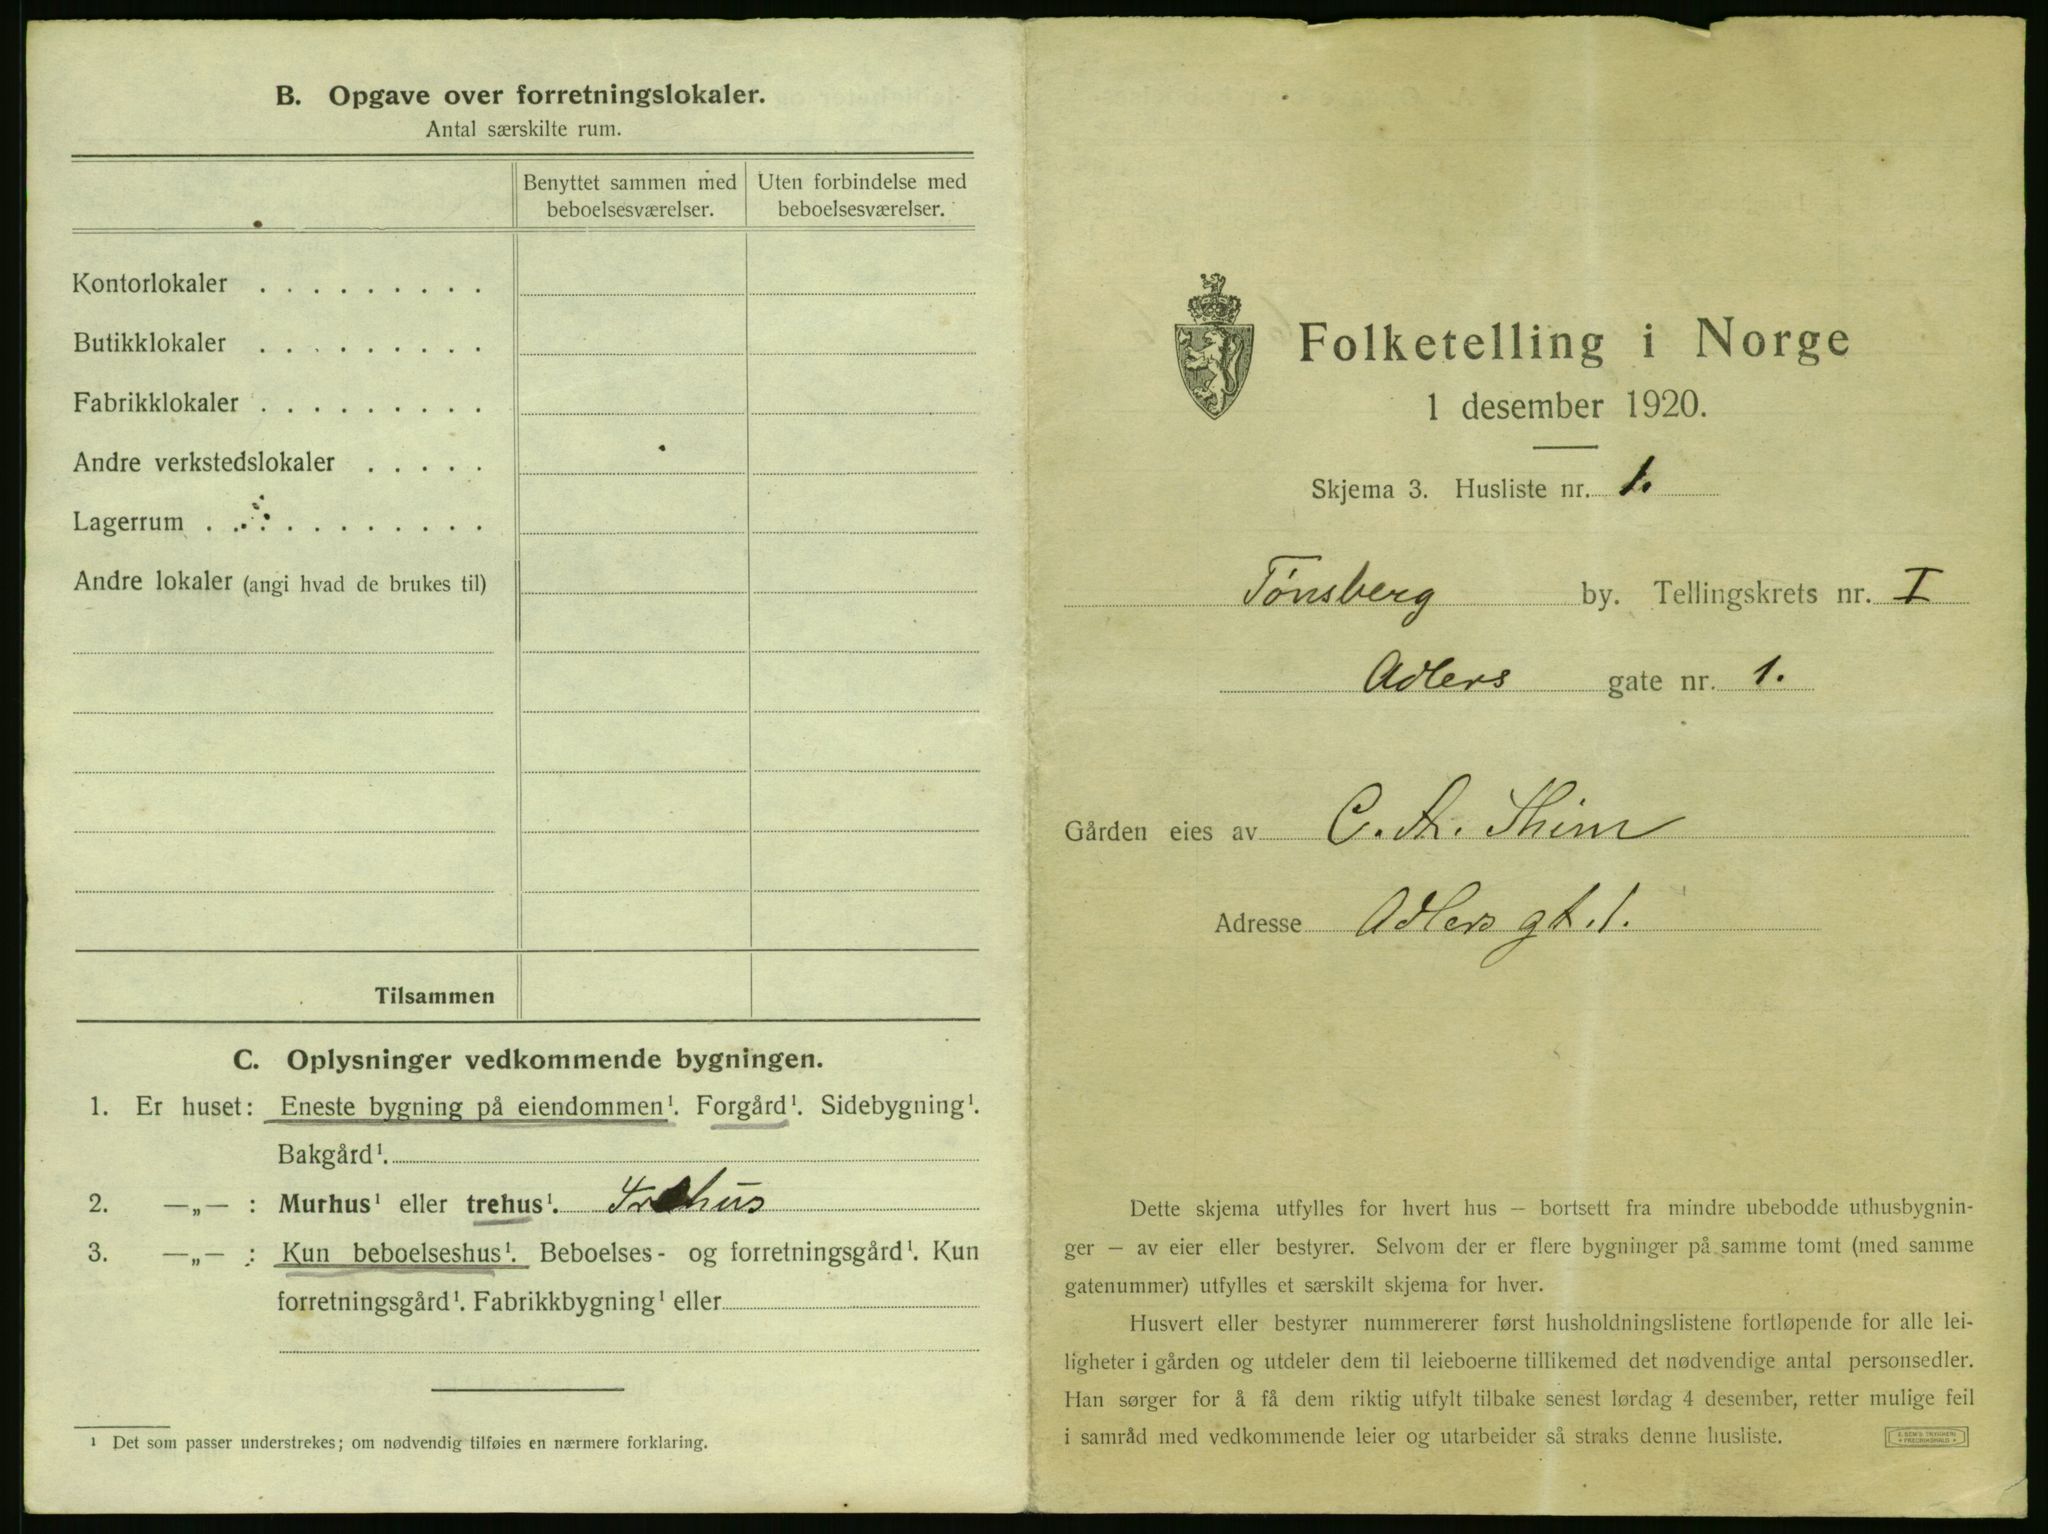 B. Opgave over forretningslokaler.
Antal særskilte rum.
Benyttet sammen med beboelsesværelser.
Uten forbindelse med beboelsesværelser.
Kontorlokaler . . . . . . . . .
Butikklokaler . . . . . . . . .
Fabrikklokaler . . . . . . . . .
Andre verkstedslokaler . . . . .
Lagerrum . . . . . . . . . . .
Andre lokaler (angi hvad de brukes til)
Tilsammen
C. Oplysninger vedkommende bygningen.
1. Er huset: Eneste bygning på eiendommen¹. Forgård¹. Sidebygning¹.
Bakgård¹.
2. —„— : Murhus¹ eller trehus¹. Trehus
3. —„— : Kun beboelseshus¹. Beboelses- og forretningsgård¹. Kun
forretningsgård¹. Fabrikkbygning¹ eller
¹ Det som passer understrekes; om nødvendig tilføies en nærmere forklaring.
Folketelling i Norge
1 desember 1920.
Skjema 3. Husliste nr. 1.
Tønsberg by. Tellingskrets nr. I
Adlers gate nr. 1.
Gården eies av C.
Adresse Adlers gt. 1.
Dette skjema utfylles for hvert hus — bortsett fra mindre ubebodde uthusbygnin-
ger — av eier eller bestyrer. Selvom der er flere bygninger på samme tomt (med samme
gatenummer) utfylles et særskilt skjema for hver.
Husvert eller bestyrer nummererer først husholdningslistene fortløpende for alle lei-
ligheter i gården og utdeler dem til leieboerne tillikemed det nødvendige antal personsedler.
Han sørger for å få dem riktig utfylt tilbake senest lørdag 4 desember, retter mulige feil
i samråd med vedkommende leier og utarbeider så straks denne husliste.